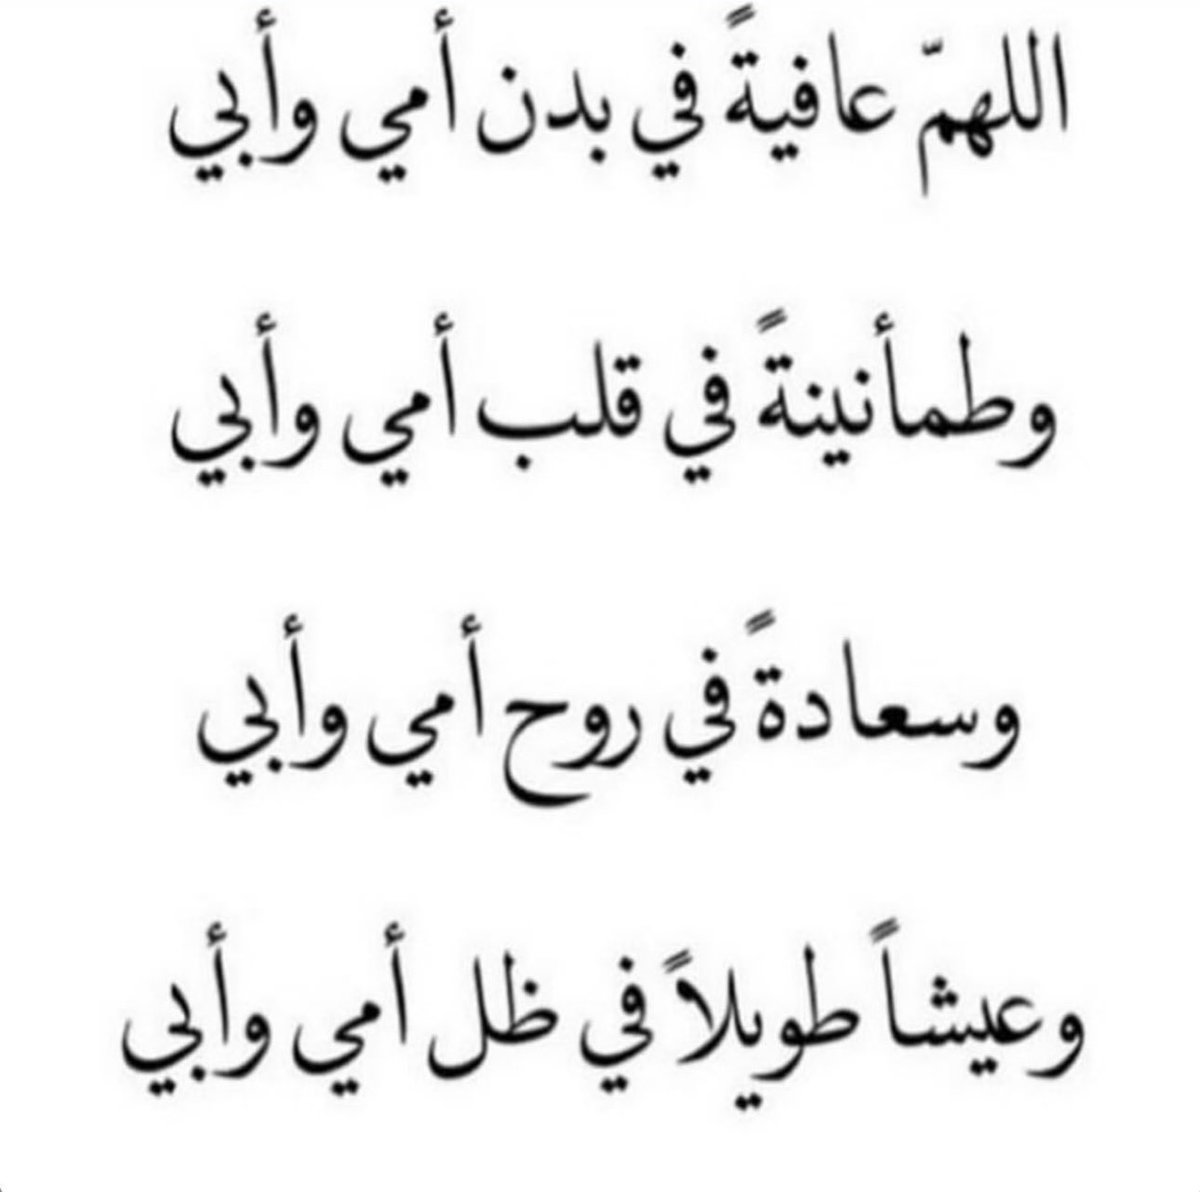 اللهمّ عافيةً في بدن أمي وأبي
وطمأنينةً في قلب أمي وأبي
وسعادةً في روح أمي وأبي
وعيشاً طويلاً في ظل أمي وأبي